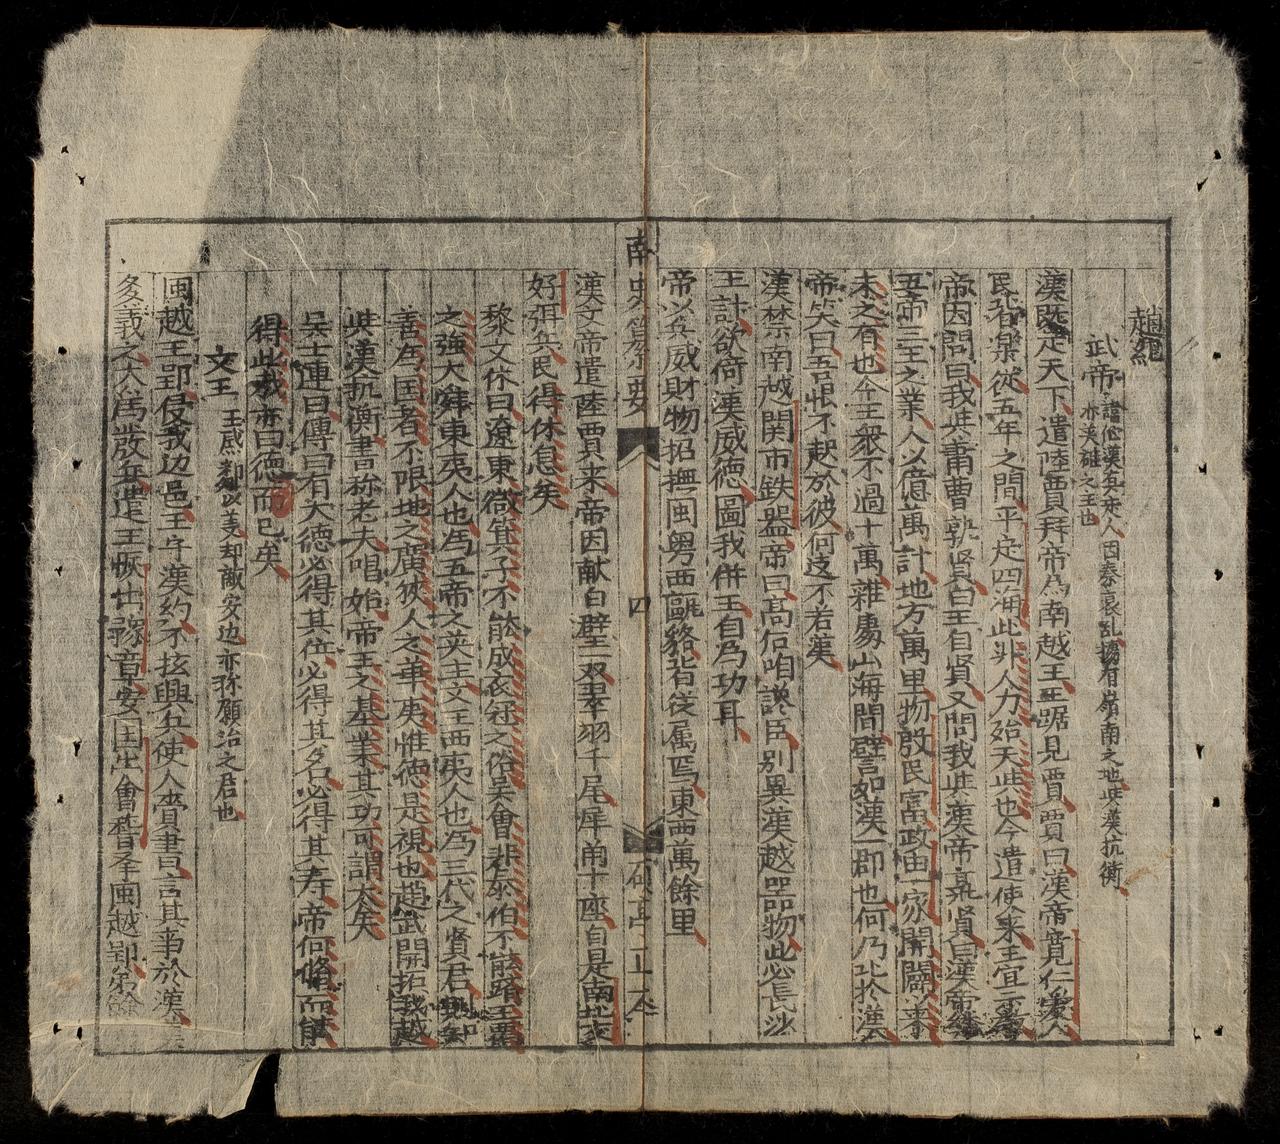 趙紀
武帝 諱佗漢真定人因秦衰乱擅有嶺南之地與漢抗衡
亦英雄之主也
漢既定天下遣陸賈拜帝為南越王王踞見賈賈曰漢帝寬仁愛人
民皆樂從五年之間平定四海此非人力殆天與也今遣使來王宜
帝因問曰我與蕭曹孰賢曰王自賢又問我與漢帝孰賢曰漢帝繼
五帝三王之業人以億萬計地方萬里物殷民富政由一家開闢
未之有也今王衆不過十萬雜處山海間譬如漢一郡也何乃比於漢
帝笑曰吾恨不起於彼何遽不若漢
漢禁南越関市鉄器帝曰高后咱讒臣別異漢越器物此必長沙
王計欲倚漢威德圖我併王自為功耳
帝以兵威財物招撫閩粤西甌駱皆從属焉東西萬餘里
南史纂要
四
碩亭正本
漢文帝遣陸賈来帝因献白璧一双翠羽千尾犀角十座自是南北交
好弭兵民得休息矣
黎文休曰遼東微箕子不能成衣冠之俗吳會非泰伯不能躋王霸
之強大舜東夷人也為五帝之英主文王西夷人也為三代之賢君則知
善為国者不限地之廣狹人之華夷惟德是視也趙武開拓我越
與漢抗衡書称老夫唱始帝王之基業其功可謂大矣
吳士連曰傳曰有大德必得其位必得其名必得其寿帝何脩而能
得此哉亦曰德而已矣
文王 王感鄰以義却敵安边亦称願治之君也
閩越王郢侵我边邑王守漢約不擅興兵使人賫書言其事於漢
多義之大為發兵遣王恢出豫章安国出會稽擊閩越郢弟餘